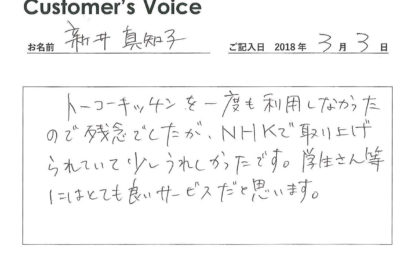 Customer's Voice
お名前 新井 真知子 ご記入日 2018 年 3 月 3 日
トーコーキッチンを一度も利用しなかった
ので残念でしたが、NHKで取り上げ
られていて少しうれしかったです。学生さん等
にはとても良いサービスだと思います。